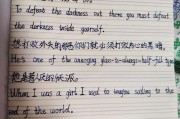 To defeat the darkness out there you must defeat
the darkness inside yourself.
想打败外头的邪恶你们就必须打败内心的黑暗。
He's one of the annoying glass-is-always-half-full types
他是 的
When I was a girl I used to imagine sailing to the
end of the world.